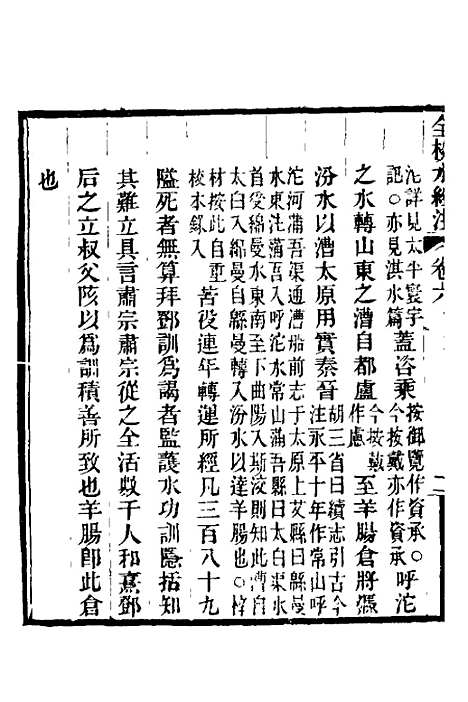 全校水經注 卷六
沱詳見太平寰宇
記〇亦見淇水篇
蓋咨乘
按御覽作資承〇
今按戴亦作資承
呼沱
之水轉山東之漕自都盧
今按戴
作慮
至羊腸倉將憑
汾水以漕太原用實秦晉
胡三省曰續志引古今
注永平十年作常山呼
沱河蒲吾渠通漕船前志于太原上艾縣曰綿曼
水東注蒲吾入呼沱水常山蒲吾縣曰太白渠水
首受綿曼水東南至下曲陽入斯洨則知此漕自
太白入綿曼自綿曼轉入汾水以達羊腸也〇梓
材按此自重
校本錄入
苦役連年轉運所經凡三百八十九
隘死者無算拜鄧訓爲謁者監護水功訓隱括知
其難立具言肅宗肅宗從之全活數千人和熹鄧
后之立叔父陔以爲訓積善所致也羊腸即此倉
也